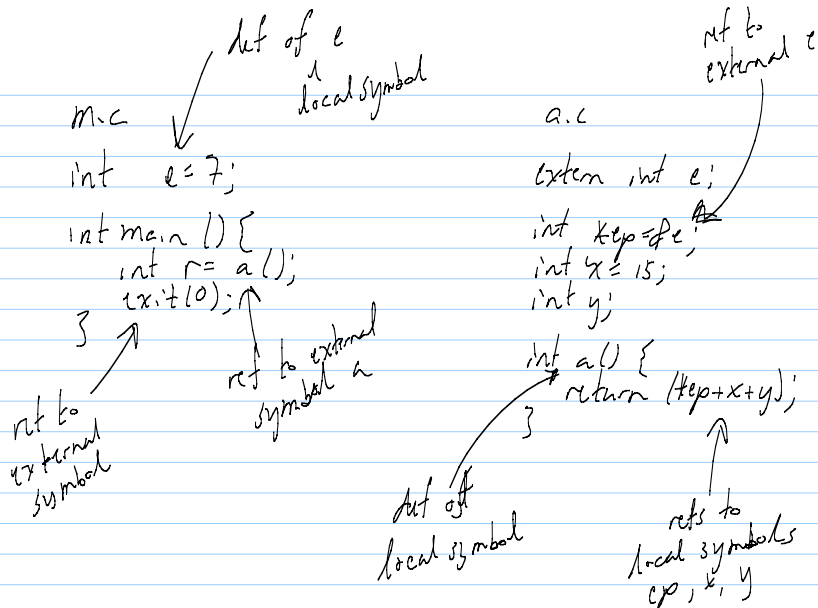 def of e
local symbol
m.c
int e = 7;
int main () {
int r = a ();
exit(0);
}
ref to external
symbol a
ref to
external
symbol
ref to
external e
a.c
extern int e;
int *ep=&e;
int x = 15;
int y;
int a() {
return (*ep+x+y);
}
def of
local symbol
refs to
local symbols
ep, x, y